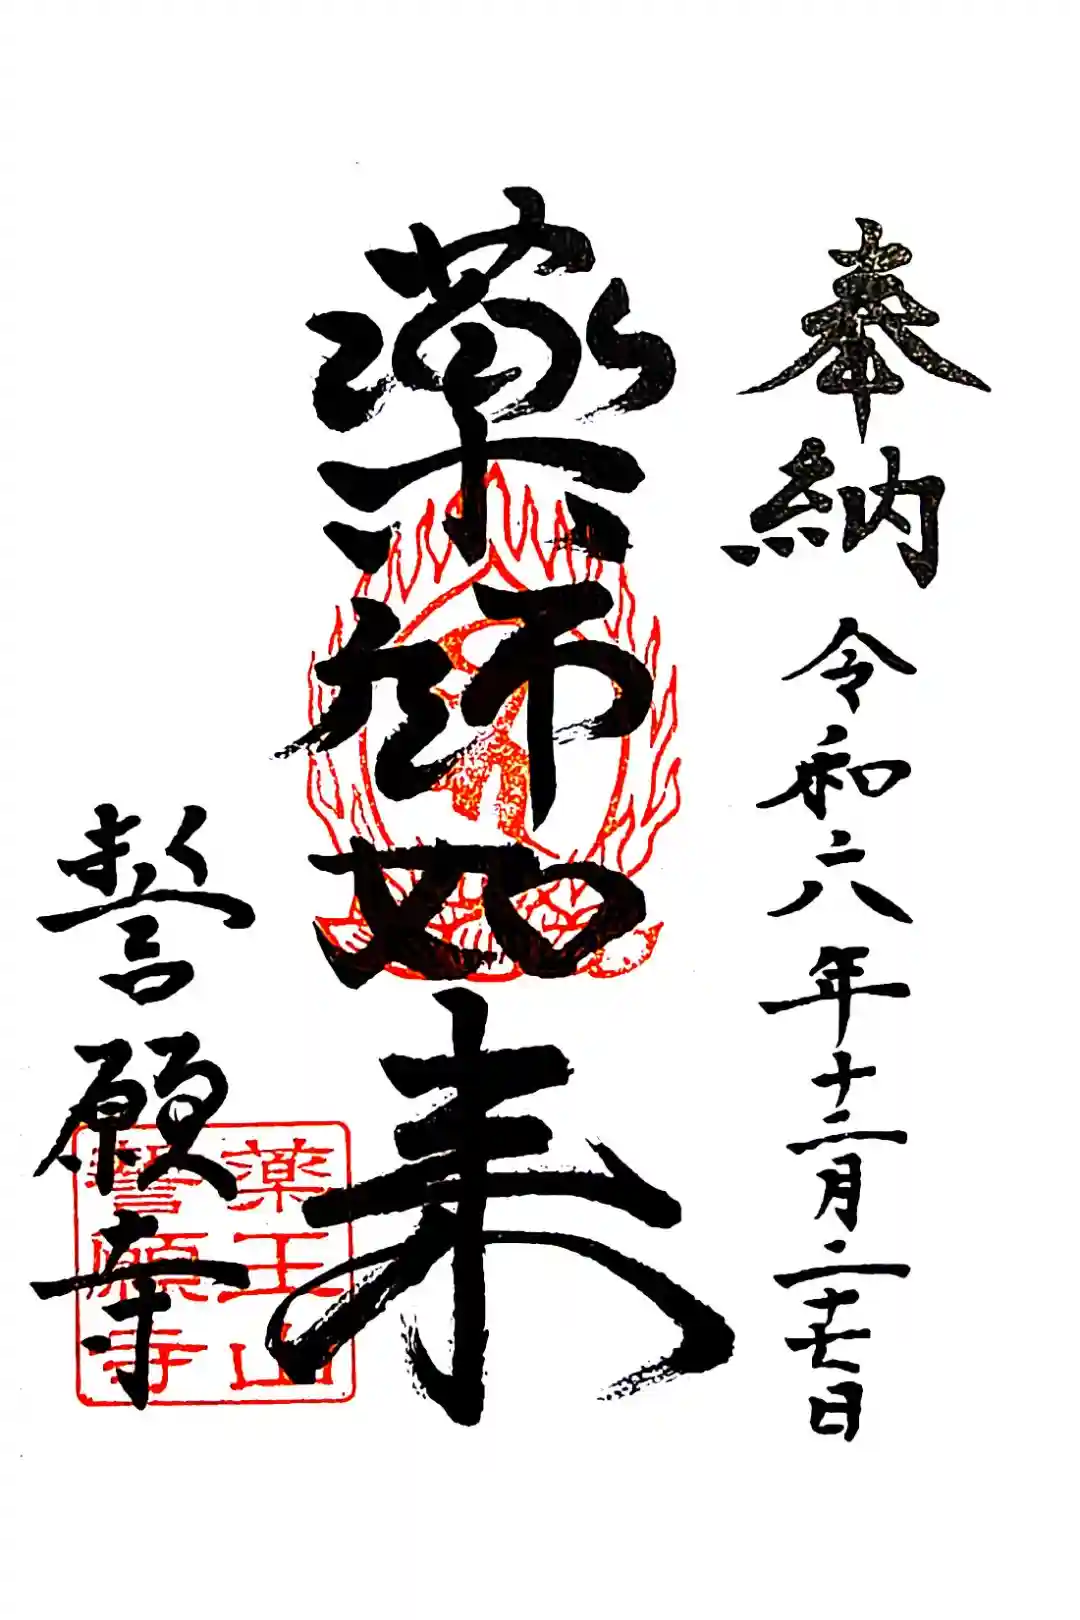 奉納
令和六年十二月二十七日
薬師如来
誓願寺
薬王山
誓願寺